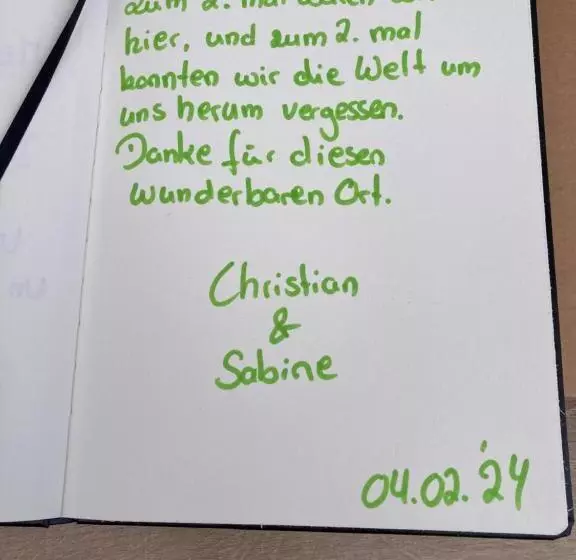 zum 2. mal waren
hier, und zum 2. mal
konnten wir die Welt um
uns herum vergessen.
Danke für diesen
wunderbaren Ort.
Christian
&
Sabine
04.02.'24